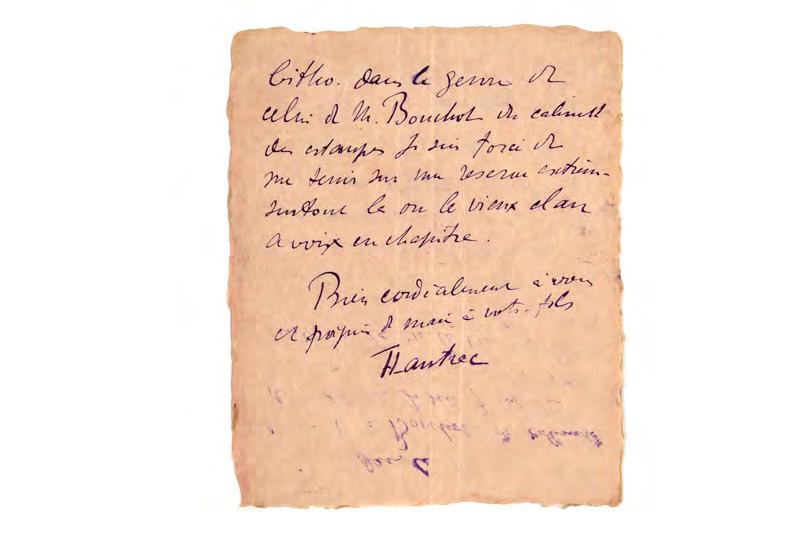 litho. dans le genre de
celui de M. Bouchot du cabinet
des estampes je suis forcé de
me tenir sur une reserve extrême
surtout la ou le vieux clan
a voix en chapitre.
Bien cordialement à vous
et poignée de main à votre fils
HLautrec